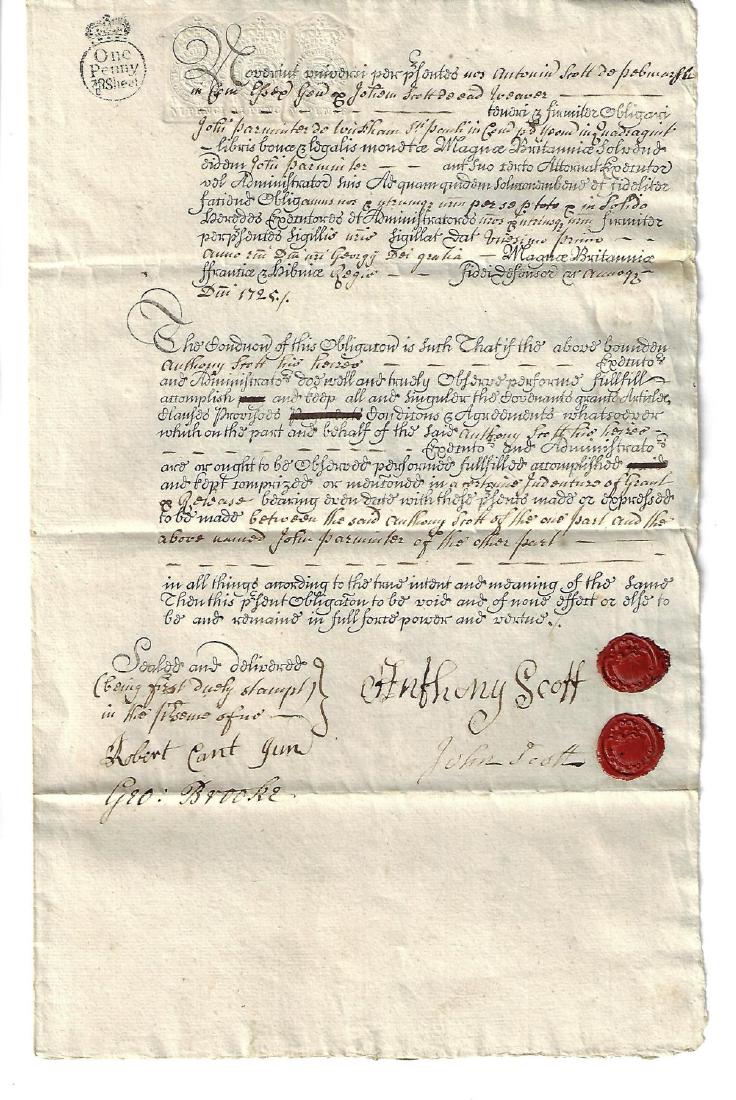 One
Penny
Sheet
Noverint universi per p'sentes nos Antoniu Scott de Pebmarsh
in Com Essex Gen & Johem Scott de ead Weaver
teneri & firmiter Obligari
Johi Parminter de Wickham Sti Pauli in Com pd Yeom in Quadragint
libris bonæ & legalis monetæ Magnæ Britanniæ Solvend
eidem Johi Parminter aut suo certo Attornat Executor
vel Administrator suis Ad quam quidem soluconem bene et fideliter
faciend Obligamus nos & utrumq nrm per se p toto & in solido
Heredes Executores et Administratores nros & utriusq nrm firmiter
per p'sentes sigillis nris sigillat dat Vicesimo primo
Anno rni Dni nri Georgij Dei gratia Magnæ Britanniæ
ffranciæ & Hibniæ Regis fidei defensor &c Annoq
Dni 1725
The Condicon of this Obligacon is such That if the above bounden
Anthony Scott his heires Executors
and Administrators doe well and truely Observe performe fullfill
accomplish and keep all and singuler the Covenants grants Articles
Clauses Provisoes Condicons & Agreements whatsoever
which on the part and behalf of the said Anthony Scott his heires
Executors and Administrators
are or ought to be Observed performed fullfilled accomplished
and kept comprized or menconed in a certaine Indenture of Grant
& Release bearing even date with these p'sents made or expressed
to be made between the said Anthony Scott of the one part and the
above named John Parminter of the other part
in all things according to the true intent and meaning of the same
Then this p'sent Obligacon to be void and of none effect or else to
be and remaine in full force power and vertue
Sealed and delivered
(being first duely stampt)
in the p'sence of us
Anthony Scott
Robert Cant Jun
John Scott
Geo: Brooke